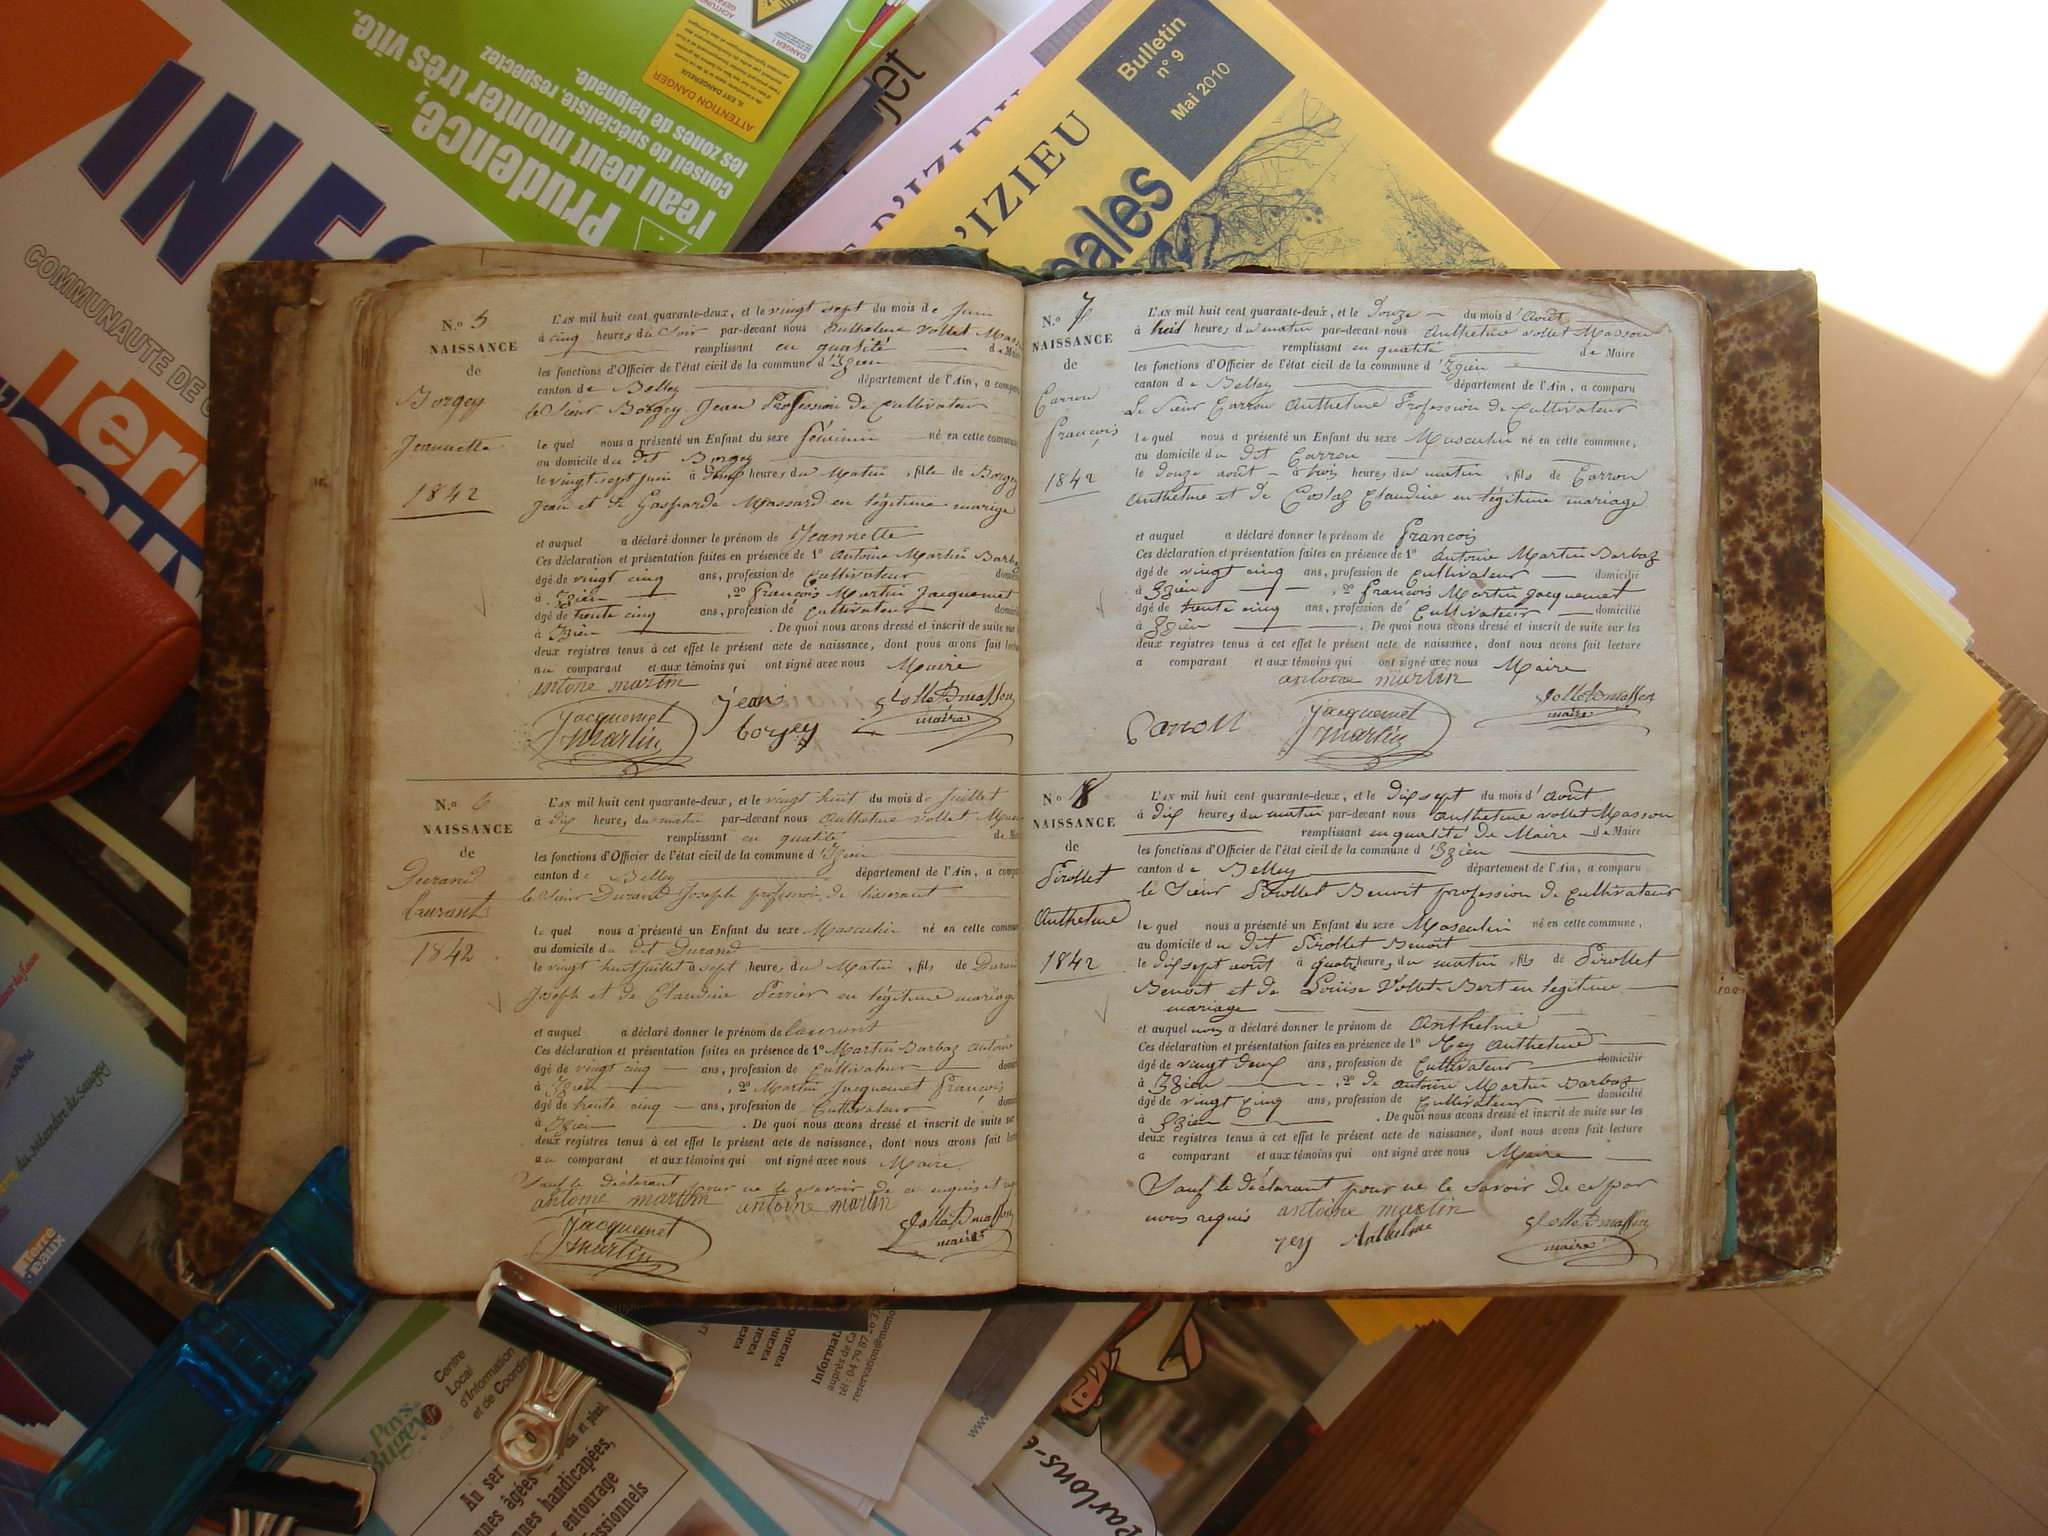 INFO
COMMUNAUTE DE
Prudence,
l'eau peut monter très vite.
conseil de spécialiste, respectez
les zones de baignade.
ATTENTION DANGER
Bulletin
n° 9
Mai 2010
D'IZIEU
'IZIEU
N.o 5
NAISSANCE
de
Borgey
Jeannette
1842
L'AN mil huit cent quarante-deux, et le vingt sept du mois de Juin
à cinq heures du Soir par-devant nous Anthelme Vollet
remplissant en qualité de Maire
les fonctions d'Officier de l'état civil de la commune d'Izieu
canton de Belley département de l'Ain, a
le Sieur Borgey Jean Profession de Cultivateur
le quel nous a présenté un Enfant du sexe féminin né en cette
au domicile du dit Borgey
le vingt sept Juin à heures du Matin, fille de Borgey
Jean et de Gasparde Massard en légitime mariage
et auquel a déclaré donner le prénom de Jeannette
Ces déclaration et présentation faites en présence de 1° Antoine Martin
âgé de vingt cinq ans, profession de Cultivateur
à Izieu, 2° François Martin Jacquemet
âgé de trente cinq ans, profession de Cultivateur
à Izieu. De quoi nous avons dressé et inscrit de suite sur
deux registres tenus à cet effet le présent acte de naissance, dont nous avons fait
au comparant et aux témoins qui ont signé avec nous Maire
antoine martin
Jacquemet
Martin
jean
borgey
maire
N.o 6
NAISSANCE
de
Durand
Laurant
1842
L'AN mil huit cent quarante-deux, et le vingt huit du mois de Juillet
à dix heures du matin par-devant nous Anthelme Vollet
remplissant en qualité
les fonctions d'Officier de l'état civil de la commune d'Izieu
canton de Belley département de l'Ain, a
le Sieur Durand Joseph profession de tisserant
le quel nous a présenté un Enfant du sexe Masculin né en cette
au domicile du dit Durand
le vingt huit Juillet à sept heures du Matin, fils de
Joseph et de Claudine Perrier en légitime mariage
et auquel a déclaré donner le prénom de laurent
Ces déclaration et présentation faites en présence de 1° Martin Barbaz Antoine
âgé de vingt cinq ans, profession de Cultivateur
à Izieu, 2° Martin Jacquemet François
âgé de trente cinq ans, profession de Cultivateur
à Izieu. De quoi nous avons dressé et inscrit de suite sur
deux registres tenus à cet effet le présent acte de naissance, dont nous avons fait
au comparant et aux témoins qui ont signé avec nous Maire.
Sauf le déclarant pour ne le savoir de ce enquis
antoine martin antoine martin
Jacquemet
martin
maire
N.o 7
NAISSANCE
de
Carrou
françois
1842
L'AN mil huit cent quarante-deux, et le Douze du mois d'Août
à huit heures du matin par-devant nous Anthelme Vollet Masson
remplissant en qualité de Maire
les fonctions d'Officier de l'état civil de la commune d'Izieu
canton de Belley département de l'Ain, a comparu
Le Sieur Carrou Anthelme Profession de Cultivateur
le quel nous a présenté un Enfant du sexe Masculin né en cette commune,
au domicile du dit Carrou
le douze août à trois heures du matin, fils de Carrou
Anthelme et de Costaz Claudine en légitime mariage
et auquel a déclaré donner le prénom de françois
Ces déclaration et présentation faites en présence de 1° Antoine Martin Barbaz
âgé de vingt cinq ans, profession de Cultivateur domicilié
à Izieu, 2° François Martin Jacquemet
âgé de trente cinq ans, profession de Cultivateur domicilié
à Izieu. De quoi nous avons dressé et inscrit de suite sur les
deux registres tenus à cet effet le présent acte de naissance, dont nous avons fait lecture
a comparant et aux témoins qui ont signé avec nous Maire
antoine martin
Jacquemet
martin
maire
N.o 8
NAISSANCE
de
Pirollet
Anthelme
1842
L'AN mil huit cent quarante-deux, et le dix sept du mois d'Août
à dix heures du matin par-devant nous Anthelme Vollet Masson
remplissant en qualité de Maire de Maire
les fonctions d'Officier de l'état civil de la commune d'Izieu
canton de Belley département de l'Ain, a comparu
le Sieur Pirollet Benoit profession de Cultivateur
le quel nous a présenté un Enfant du sexe Masculin né en cette commune,
au domicile du dit Pirollet Benoit
le dix sept août à quatre heures du matin, fils de Pirollet
Benoit et de Louise Vollet Bert en legitime
mariage
et auquel nous a déclaré donner le prénom de Anthelme
Ces déclaration et présentation faites en présence de 1° Rey Anthelme
âgé de vingt deux ans, profession de Cultivateur domicilié
à Izieu, 2° de Antoine Martin Barbaz
âgé de vingt cinq ans, profession de Cultivateur domicilié
à Izieu. De quoi nous avons dressé et inscrit de suite sur les
deux registres tenus à cet effet le présent acte de naissance, dont nous avons fait lecture
a comparant et aux témoins qui ont signé avec nous Maire
Sauf le déclarant pour ne le savoir de ce par
nous requis antoine martin
rey Anthelme
maire
Terre
d'eaux
Centre
Local
d'Information
et de
Pays
Bugey
Au
âgées
handicapées,
entourage